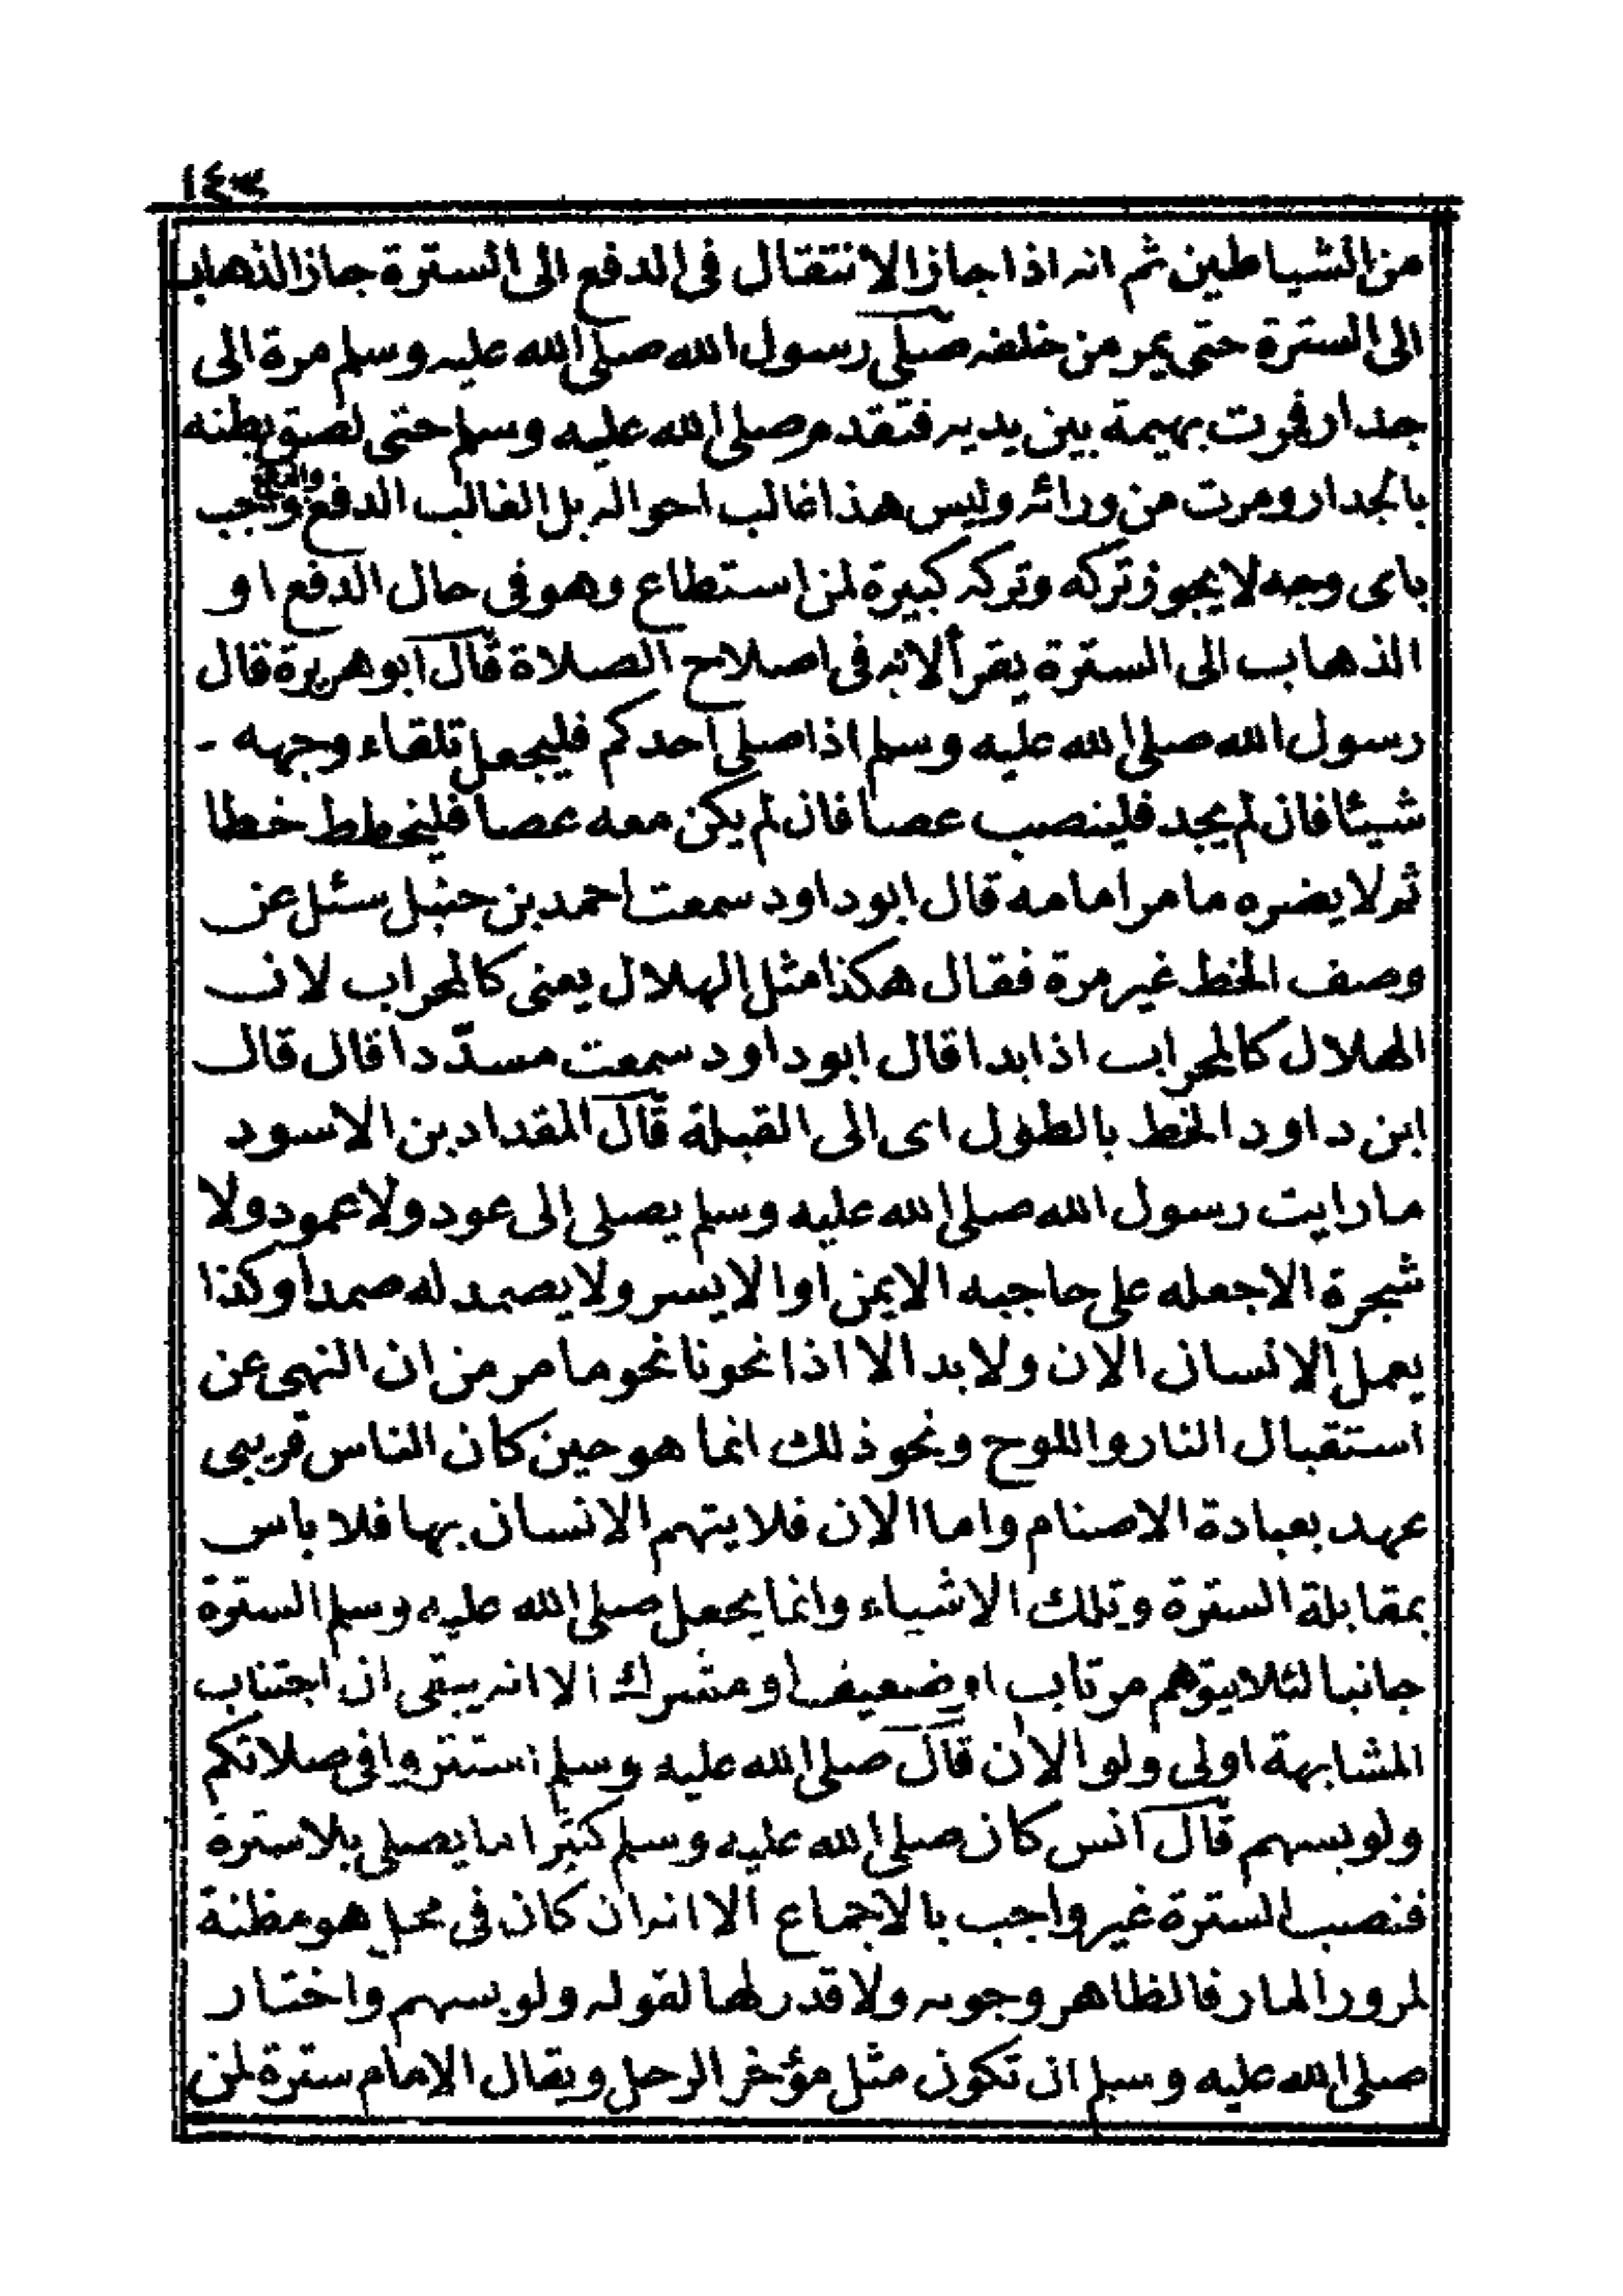 ١٤٣
من الشياطين ثم انه اذا جاز الانتقال فى الدفع الى السترة جاز الذهاب
الى السترة حتى يمر من خلفه صلى رسول الله صلى الله عليه وسلم مرة الى
جدار فمرت بهيمة بين يديه فتقدم صلى الله عليه وسلم حتى لصق بطنه
بالجدار ومرت من ورائه وليس هذا غالب احواله بل الغالب الدفع والدفع واجب
باى وجه لا يجوز تركه وتركه كبيرة لمن استطاع وهو فى حال الدفع او
الذهاب الى السترة يقرأ لانه فى اصلاح الصلاة قال ابو هريرة قال
رسول الله صلى الله عليه وسلم اذا صلى احدكم فليجعل تلقاء وجهه -
شيئا فان لم يجد فلينصب عصا فان لم يكن معه عصا فليخطط خطا
ثم لا يضره ما مر امامه قال ابو داود سمعت احمد بن حنبل سئل عن
وصف الخط غير مرة فقال هكذا مثل الهلال يعنى كالمحراب لان
الهلال كالمحراب اذا بدا قال ابو داود سمعت مسدّدا قال قال
ابن داود الخط بالطول اى الى القبلة قال المقداد بن الاسود
ما رايت رسول الله صلى الله عليه وسلم يصلى الى عود ولا عمود ولا
شجرة الا جعله على حاجبه الايمن او الايسر ولا يصمد له صمدا وكذا
يعمل الانسان الان ولا بد الا اذا نحونا نحو ما مر من ان النهى عن
استقبال النار واللوح ونحو ذلك انما هو حين كان الناس قريبى
عهد بعبادة الاصنام واما الان فلا يتهم الانسان بها فلا باس
بمقابلة السترة وتلك الاشياء وانما يجعل صلى الله عليه وسلم السترة
جانبا لئلا يتوهم مرتاب او ضعيف او مشرك الا انه يبقى ان اجتناب
المشابهة اولى ولو الان قال صلى الله عليه وسلم استتروا فى صلاتكم
ولو بسهم قال انس كان صلى الله عليه وسلم كثيرا ما يصلى بلا سترة
فنصب السترة غير واجب بالاجماع الا انه ان كان فى محل هو مظنة
لمرور المار فالظاهر وجوبه ولا قدر لها لقوله ولو بسهم واختار
صلى الله عليه وسلم ان تكون مثل مؤخر الرحل ويقال الامام سترة لمن